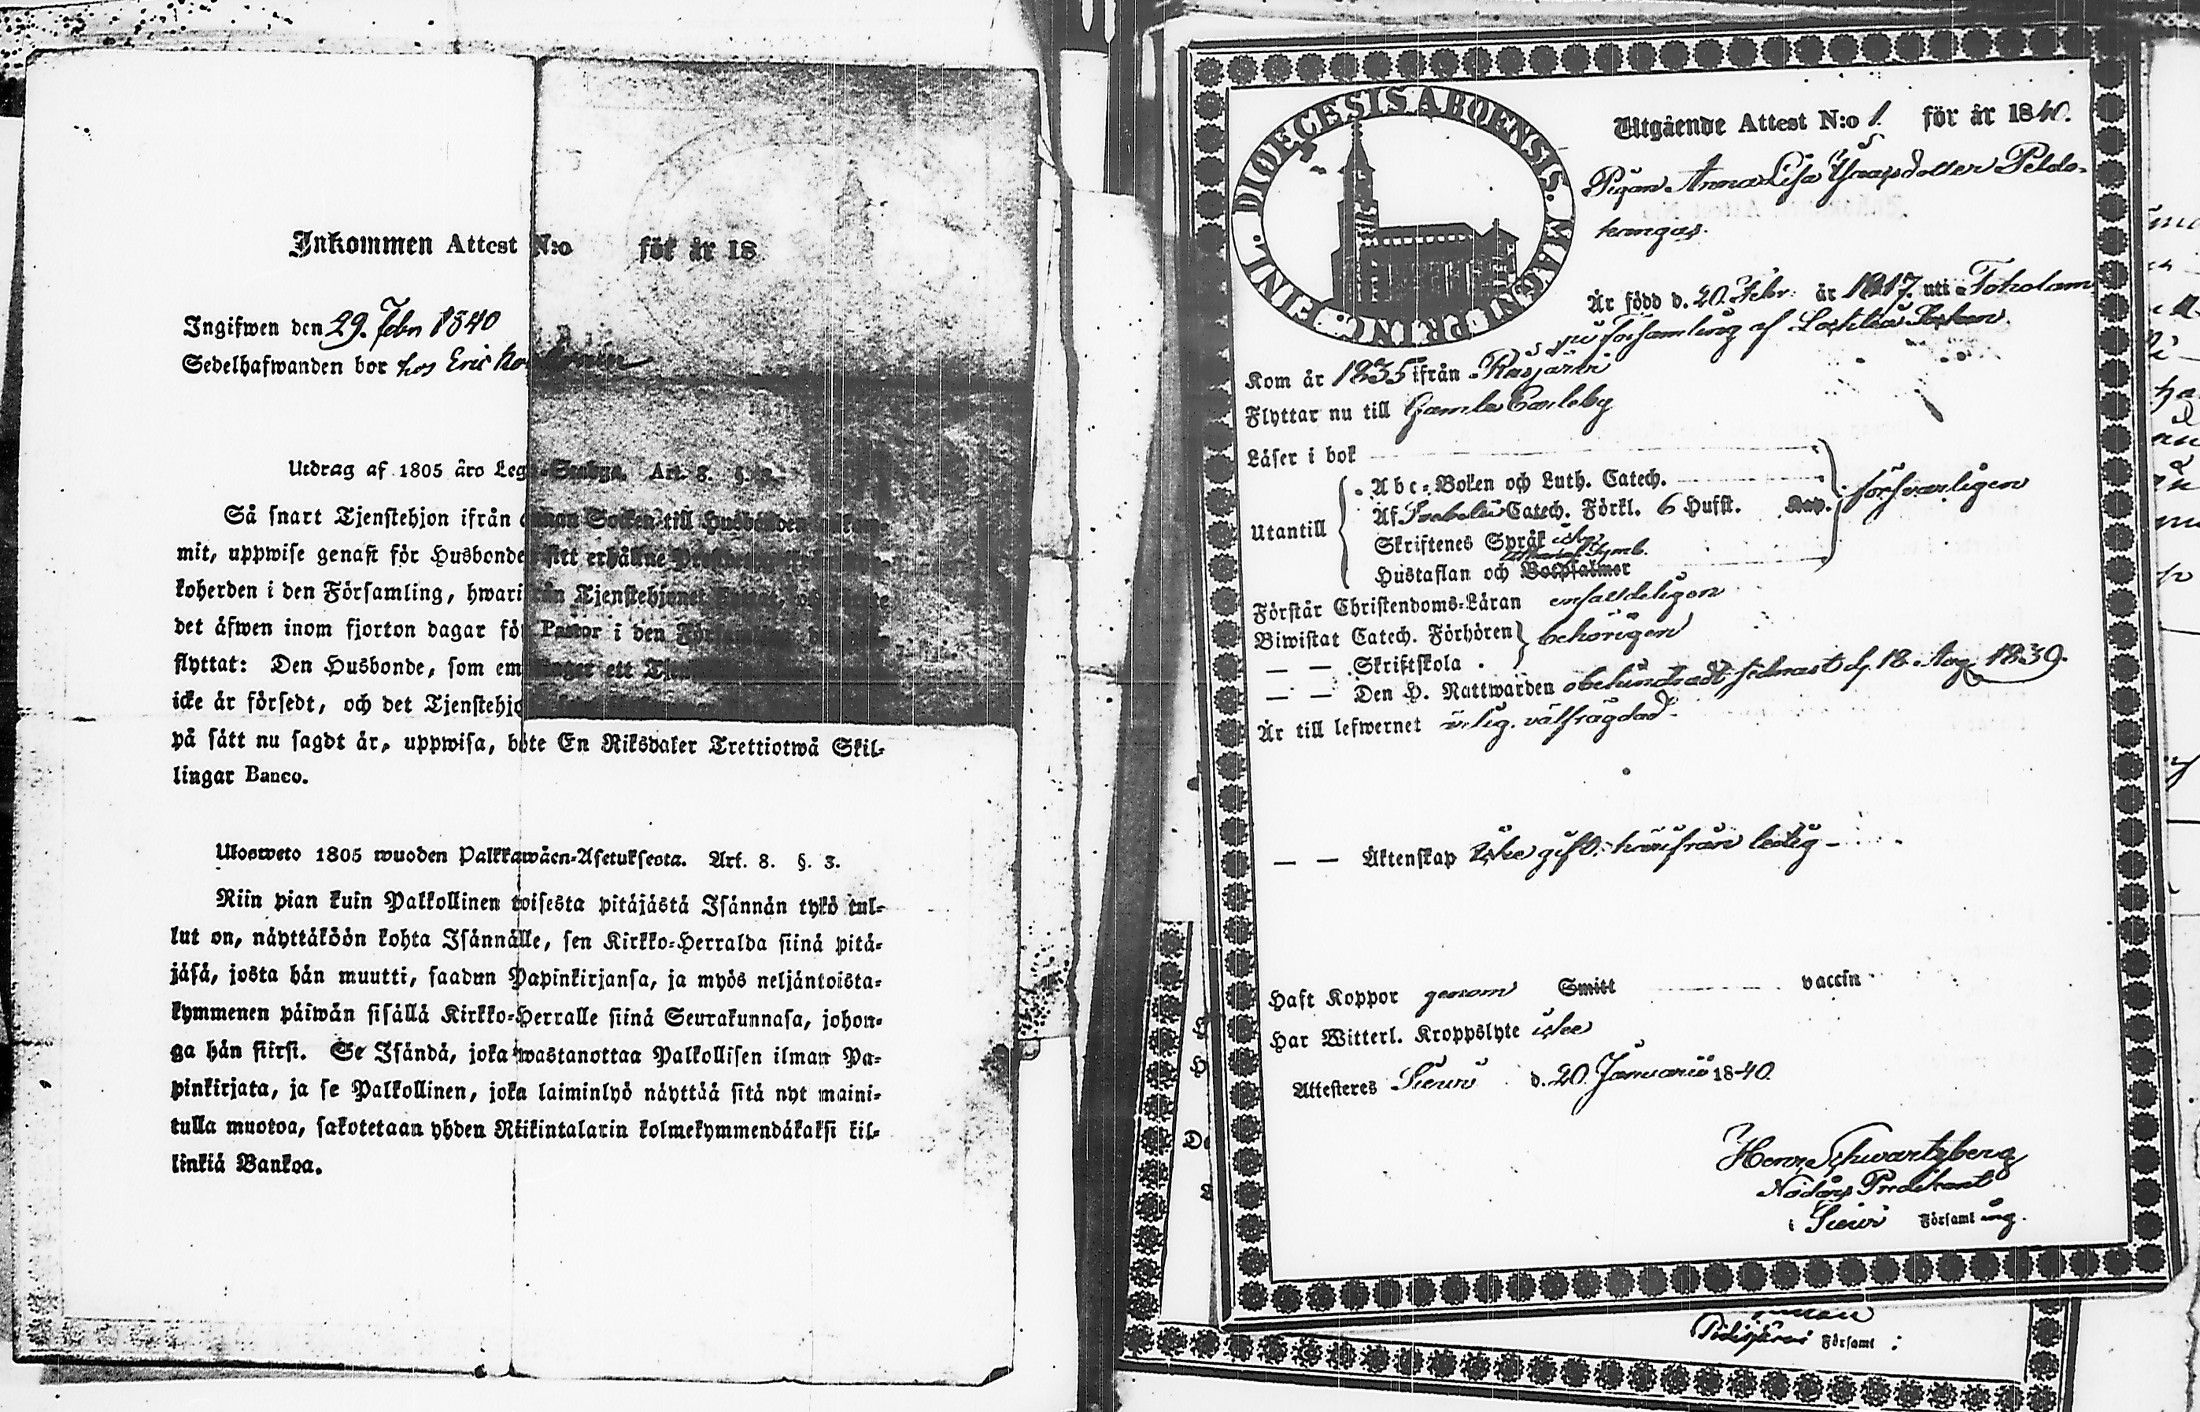 Inkommen Attest N:o för år 18
Ingifwen den 29. Febr 1840
Sedelhafwanden bor hos Eric
Utdrag af 1805 åro Lego-Stadga. Art. 8. §. 3.
Så snart Tjenstehjon ifrån annan Socken till Husbonden
mit, uppwise genast för Husbonden sitt erhållne
koherden i den Församling, hwarifrån Tjenstehjonet
det äfwen inom fjorton dagar för Pastor i den Församling,
flyttat: Den Husbonde, som emottager ett
icke är försedt, och det Tjenstehjon
på sätt nu sagdt är, uppwisa, böte En Riksdaler Trettiotwå Skil-
lingar Banco.
Ulosweto 1805 wuoden Palkkawäen-Asetuksesta. Art. 8. §. 3.
Niin pian kuin Palkollinen toisesta pitäjästä Isännän tykö tul-
lut on, näyttäköön kohta Isännälle, sen Kirkko-Herralda siinä pitä-
jäsä, josta hän muutti, saadun Papinkirjansa, ja myös neljäntoista-
kymmenen päiwän sisällä Kirkko-Herralle siinä Seurakunnasa, johon-
ga hän siirsi. Se Isändä, joka wastanottaa Palkollisen ilman Pa-
pinkirjata, ja se Palkollinen, joka laiminlyö näyttää sitä nyt maini-
tulla muotoa, sakotetaan yhden Riikintalarin kolmekymmendäkaksi kil-
linkiä Bankoa.
DIOECESIS ABOENSIS. MAGNI PRINC. FINL.
Utgående Attest N:o 1. för år 1840.
Pigan Anna Lisa Isaacsdotter Peldo-
kangas.
Är född d. 20. Febr. år 1817. uti Toholam
församling af
Kom år 1835 ifrån Räisjärvi
Flyttar nu till Gamla Carleby
Läser i bok
Abc-Boken och Luth. Catech.
Utantill
Af Svebelii Catech. Förkl. 6 Hufst. Kap. försvarligen
Skriftenes Språk icke
Symb.
Hustaflan och Botpsalmer
Förstår Christendoms-Läran enfaldeligen
Biwistat Catech. Förhören behörigen
— — Skriftskola .
— — Den H. Nattwarden obehindradt sednast d. 18 Aug. 1839.
Är till lefwernet ärlig. välfrägdad
— — Äktenskap icke gift. härifrån ledig
Haft Koppor genom Smitt vaccin
Har Witterl. Kroppslyte icke
Attesteres Sievi d. 20. Januarii 1840.
Henr. Schwartzberg
Nödårs Predikant
i Sievi Församling.
Pidisjärvi Församl :